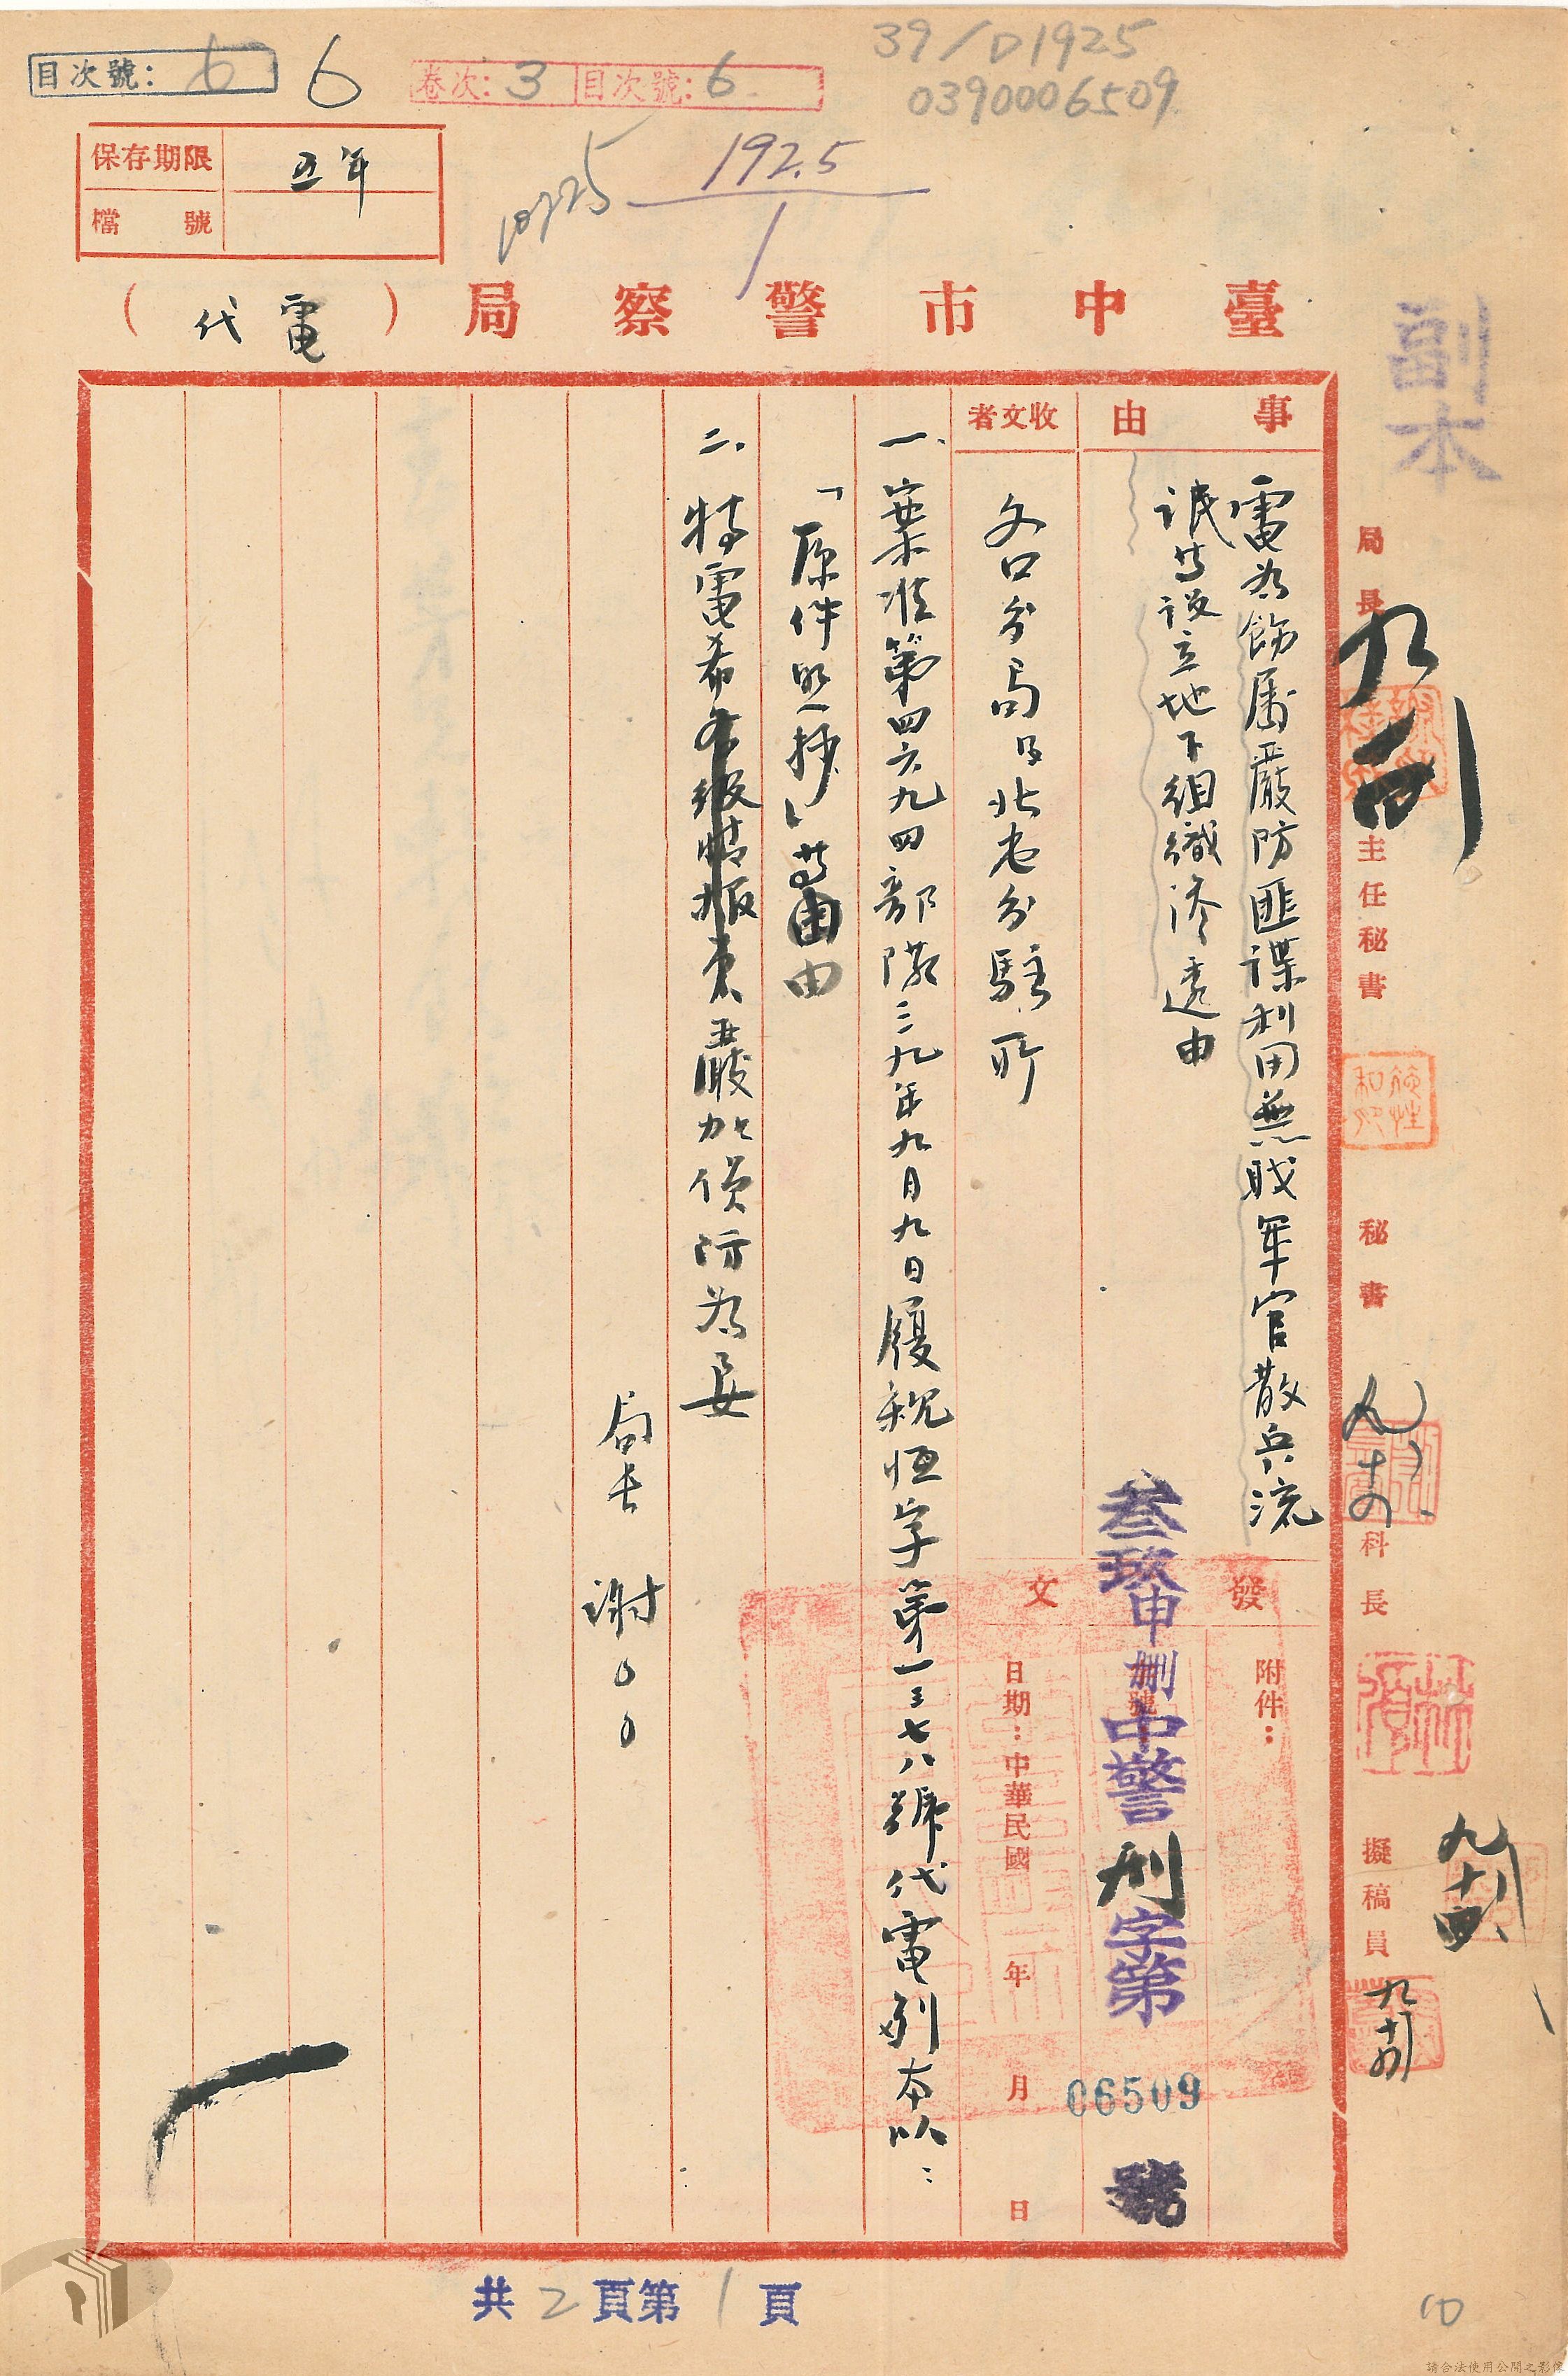 39/D1925
0390006509
目次號：6
6
卷次：3 目次號：6
192.5
1
保存期限 五年
檔號
臺中市警察局（代電）
副本
局長
主任秘書
秘書
科長
擬稿員
九
九十四
事由
電為飭屬嚴防匪諜利用無職軍官散兵流
氓等設立地下組織滲透由
收文者
各分局及北屯分駐所
發文
附件：
叁玖申刪中警刑字第06509號
日期：中華民國 年 月 日
一、案准第四六九四部隊三九年九月九日履親恒字第一三七八號代電列本以：
「原件照抄」等由
二、特電希嚴加偵防為要
局長 謝
共2頁第1頁
請合法使用公開之影像